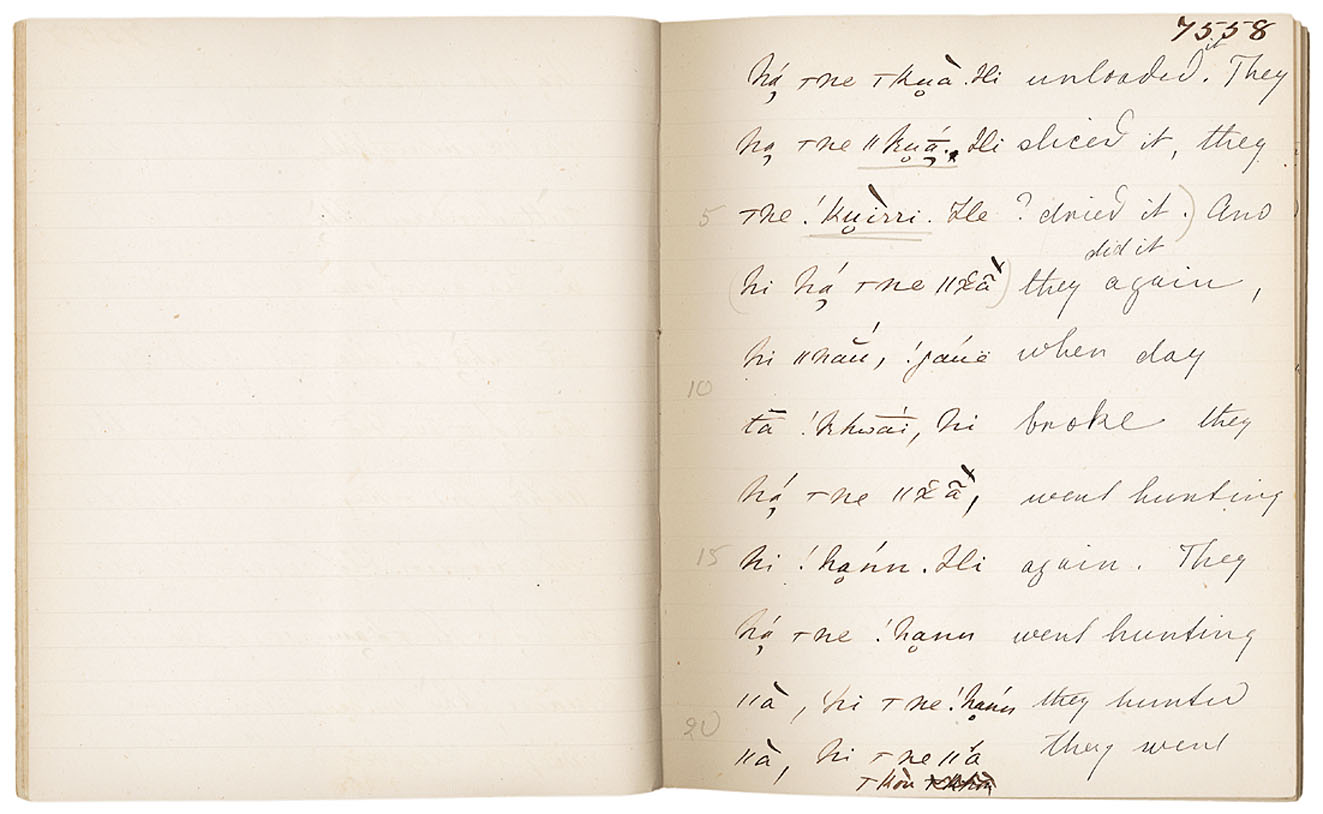 7558
há̦ ┬ne ┬kṷà. Hi unloaded it. They
ha̦ ┬ne ǁkṷā́. Hi sliced it, they
5 ┬ne ! kṷìrri. He ? dried it.) And
did it
(hi há̦ ┬ne ǁx̆ã) they again,
hi ǁnāŭ, !gáuë when day
10
tā !khwāí, hi broke they
há̦ ┬ne ǁx̆ã, went hunting
15 hi !ha̦ńn. Hi again. They
há̦ ┬ne !ha̦nn went hunting
ǁà, hi ┬ne !ha̦ńn they hunted
20
ǁà, hi ┬ne ǁá they went
┬kòu